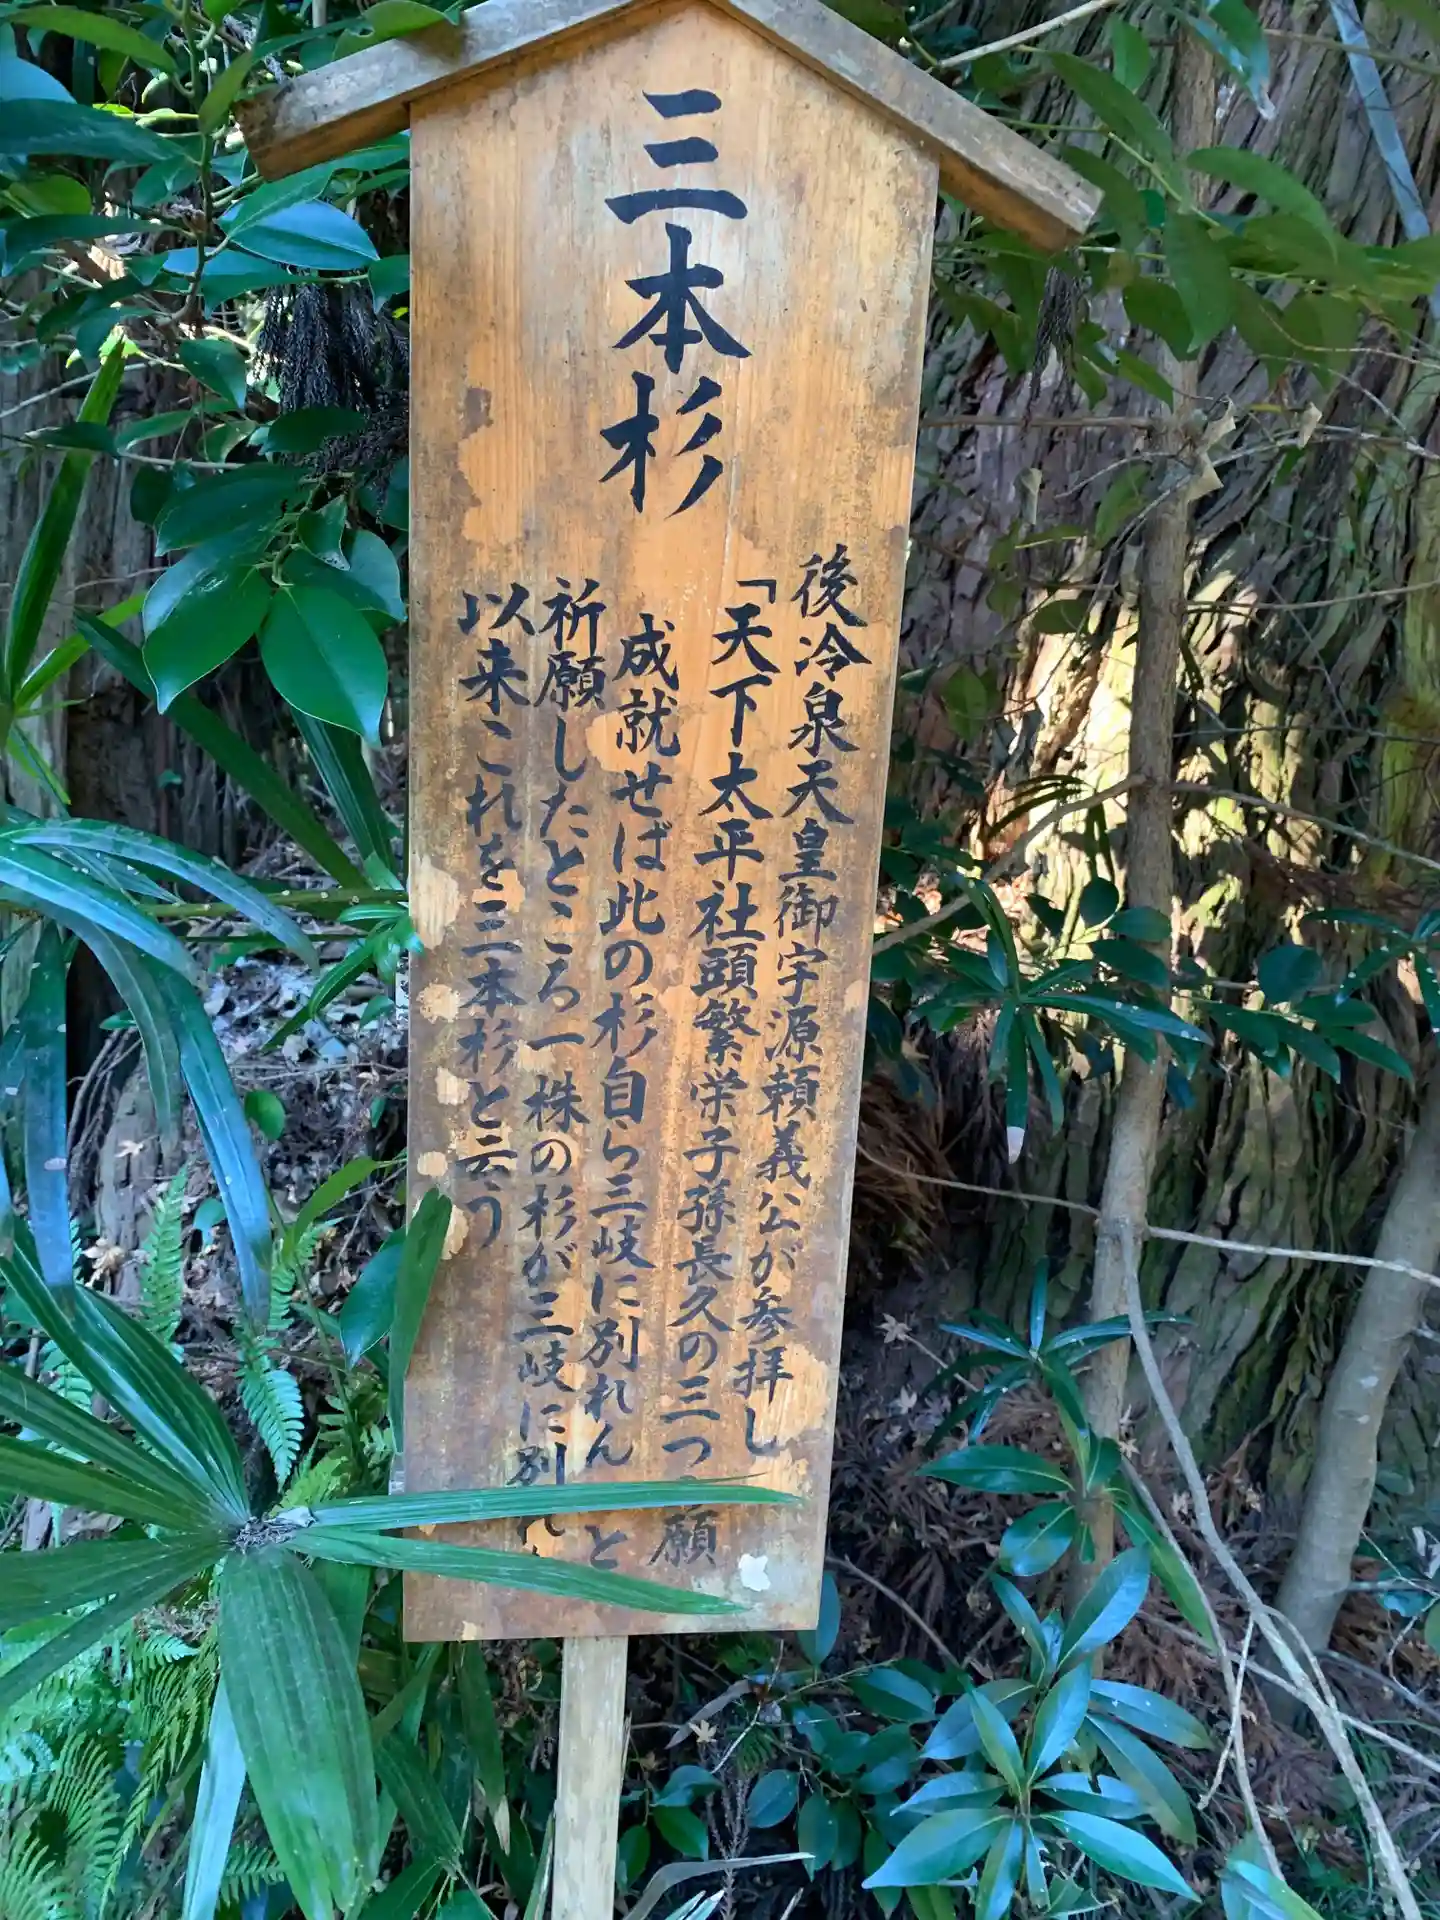 三本杉
後冷泉天皇御宇源頼義公が参拝し
「天下太平社頭繁栄子孫長久の三つ 願
成就せば此の杉自ら三岐に別れん と
祈願したところ一株の杉が三岐に別
以来これを三本杉と云う